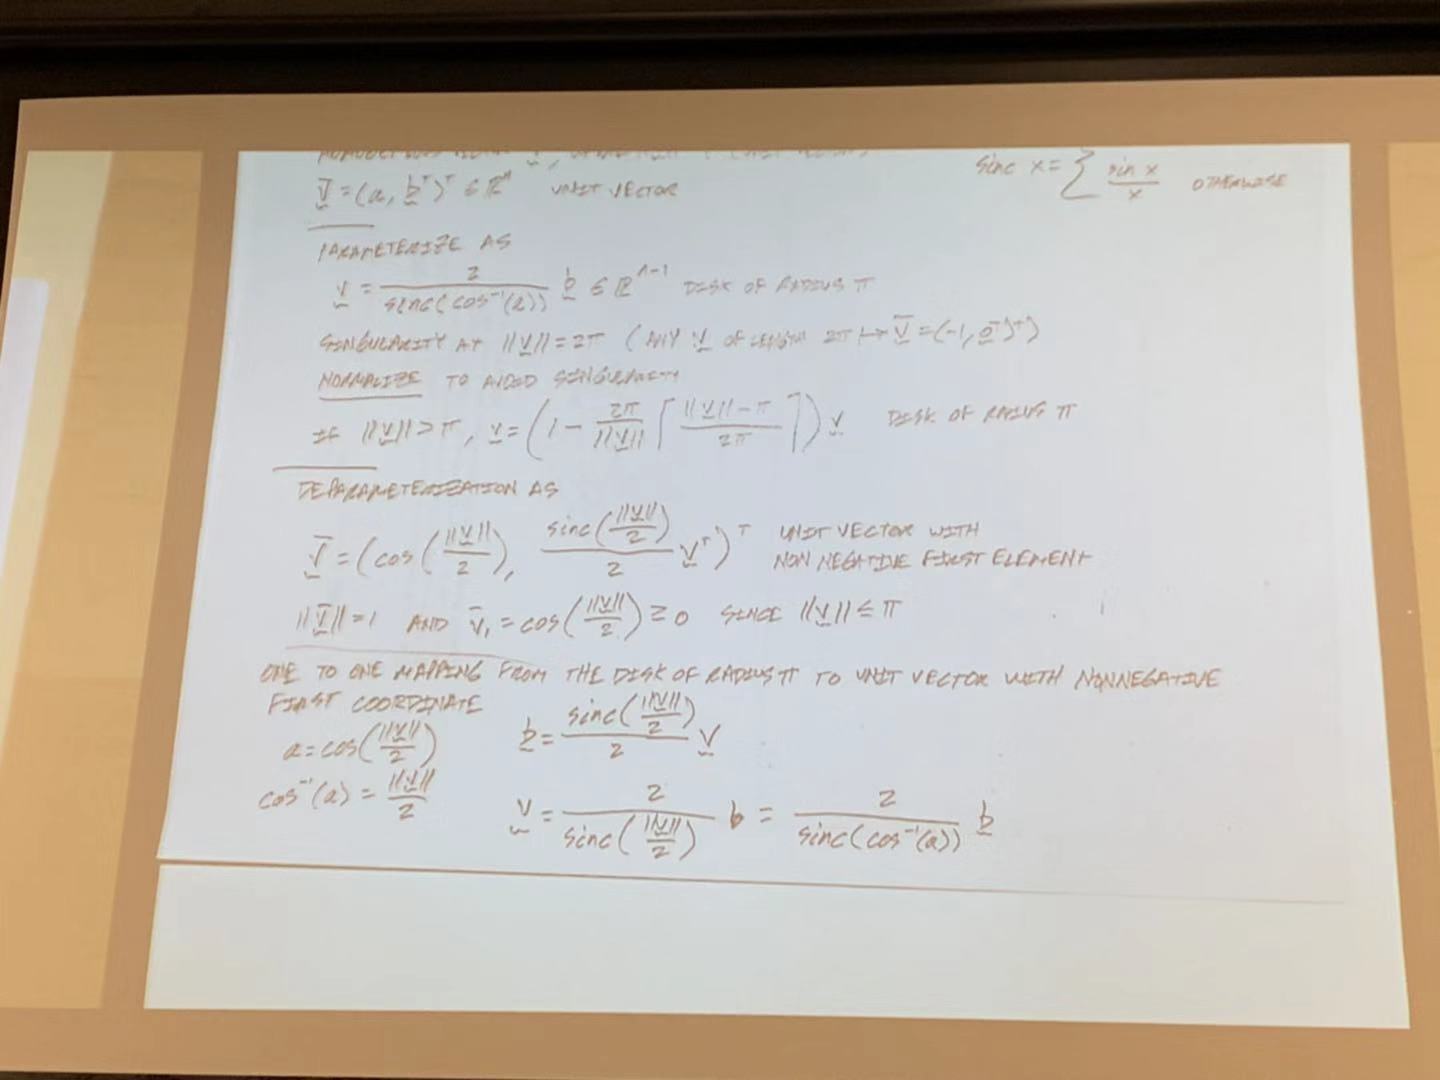 sinc x = { sin x / x OTHERWISE
v̄ = (a, bᵀ)ᵀ ∈ ℝⁿ UNIT VECTOR
PARAMETERIZE AS
v = 2 / sinc(cos⁻¹(a)) b ∈ ℝⁿ⁻¹ DISK OF RADIUS π
SINGULARITY AT ||v|| = 2π (ANY v OF LENGTH 2π ↦ v̄ = (-1, 0ᵀ)ᵀ)
NORMALIZE TO AVOID SINGULARITY
IF ||v|| > π, v = (1 - 2π/||v|| ⌈(||v|| - π)/2π⌉) v DISK OF RADIUS π
DEPARAMETERIZATION AS
v̄ = (cos(||v||/2), sinc(||v||/2)/2 vᵀ)ᵀ UNIT VECTOR WITH
NON NEGATIVE FIRST ELEMENT
||v̄|| = 1 AND v̄₁ = cos(||v||/2) ≥ 0 SINCE ||v|| ≤ π
ONE TO ONE MAPPING FROM THE DISK OF RADIUS π TO UNIT VECTOR WITH NONNEGATIVE
FIRST COORDINATE
a = cos(||v||/2) b = sinc(||v||/2)/2 v
cos⁻¹(a) = ||v||/2 v = 2 / sinc(||v||/2) b = 2 / sinc(cos⁻¹(a)) b